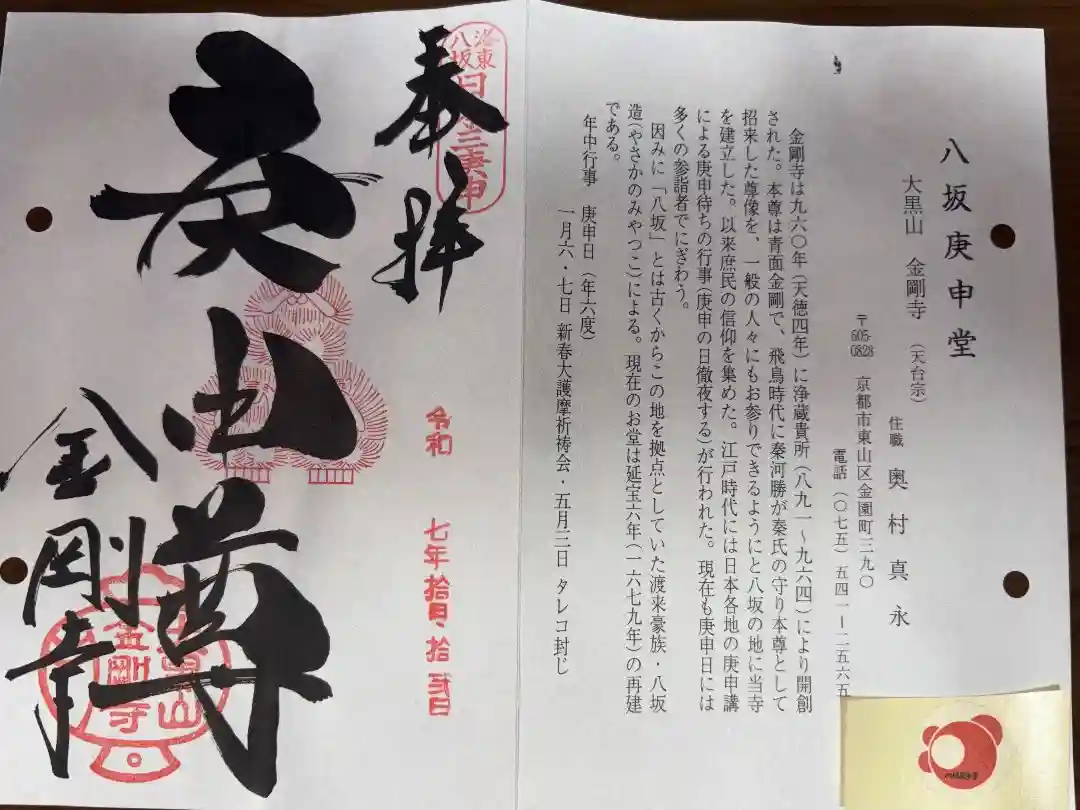 八坂庚申堂
大黒山　金剛寺　（天台宗）
住職　奥村真永
〒605-0828　京都市東山区金園町三九〇
電話（〇七五）五四一ー二五六五
金剛寺は九六〇年（天徳四年）に浄蔵貴所（八九一～九六四）により開創
された。本尊は青面金剛で、飛鳥時代に秦河勝が秦氏の守り本尊として
招来した尊像を、一般の人々にもお参りできるようにと八坂の地に当寺
を建立した。以来庶民の信仰を集めた。江戸時代には日本各地の庚申講
による庚申待ちの行事（庚申の日徹夜する）が行われた。現在も庚申日には
多くの参詣者でにぎわう。
因みに「八坂」とは古くからこの地を拠点としていた渡来豪族・八坂
造（やさかのみやつこ）による。現在のお堂は延宝六年（一六七九年）の再建
である。
年中行事　庚申日（年六度）
一月六・七日 新春大護摩祈祷会・五月三日 タレコ封じ
奉拝
洛東
八坂
日本三庚申
令和　七年拾月拾弐日
庚申尊
金剛寺
大黒山
金剛寺